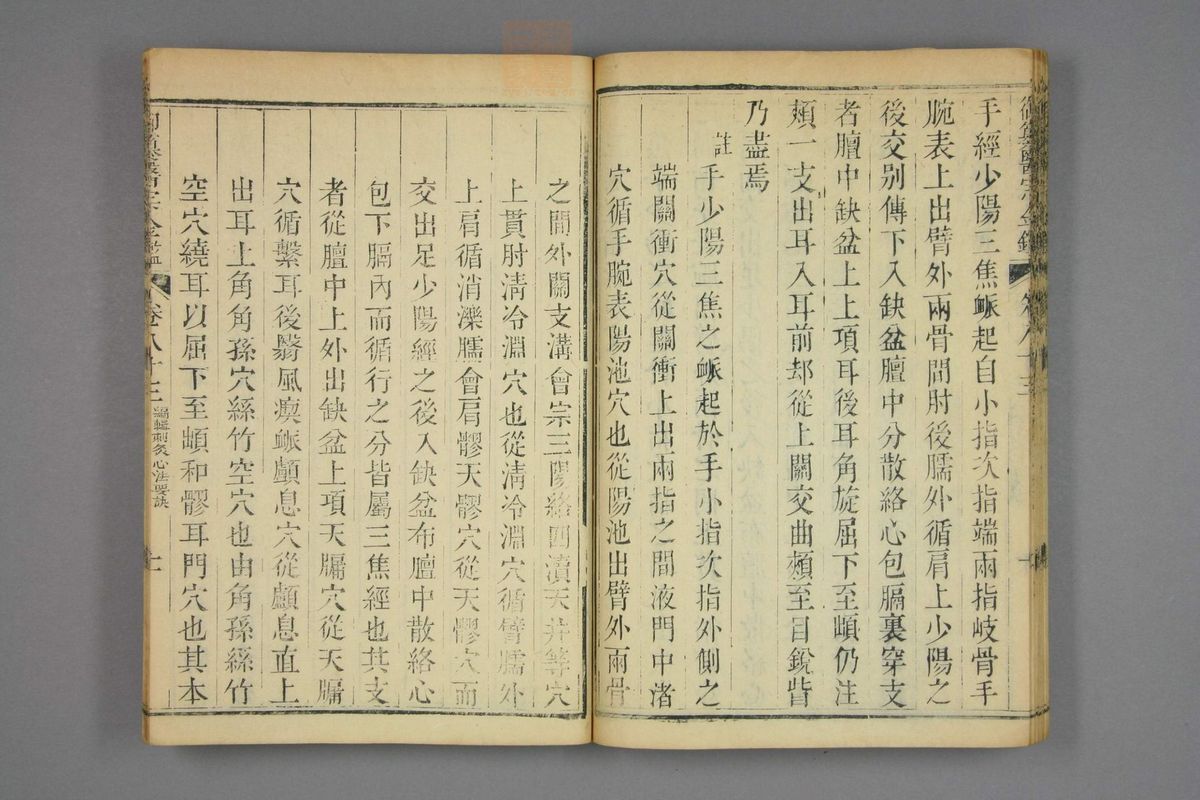 手經少陽三焦䘑起自小指次指端兩指歧骨手
腕表上出臂外兩骨間肘後臑外循肩上少陽之
後交別傳下入缺盆膻中分散絡心包膈裏穿支
者膻中缺盆上上項耳後耳角旋屈下至䪼仍注
頰一支出耳入耳前却從上關交曲頰至目銳眥
乃盡焉
註
手少陽三焦之䘑起於手小指次指外側之
端關衝穴從關衝上出兩指之間液門中渚
穴循手腕表陽池穴也從陽池出臂外兩骨
之間外關支溝會宗三陽絡四瀆天井等穴
上貫肘清冷淵穴也從清冷淵穴循臂臑外
上肩循消濼臑會肩髎天髎穴從天髎穴而
交出足少陽經之後入缺盆布膻中散絡心
包下膈內而循行之分皆屬三焦經也其支
者從膻中上外出缺盆上項天牖穴從天牖
穴循繫耳後翳風瘈䘑顱息穴從顱息直上
出耳上角角孫穴絲竹空穴也由角孫絲竹
空穴繞耳以屈下至䪼和髎耳門穴也其本
卷八十三 編輯刺灸心法要訣